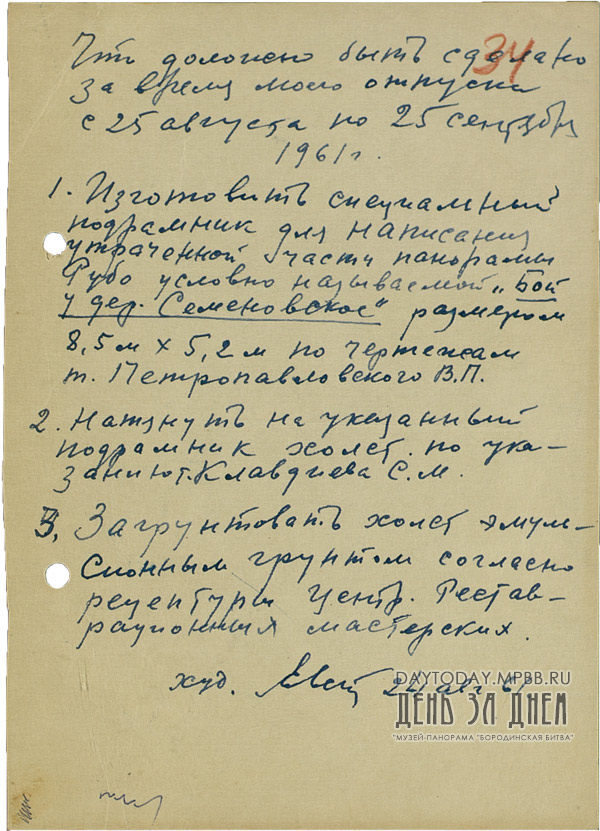 34
Что должно быть сделано
за время моего отпуска
с 25 августа по 25 сентября
1961 г.
1. Изготовить специальный
подрамник для написания
утраченной части панорамы
Рубо условно называемой „Бой
у дер. Семеновское" размером
8,5 м × 5,2 м по чертежам
т. Петропавловского В.П.
2. Натянуть на указанный
подрамник холст по ука-
занию т. Клавдиева С.М.
3. Загрунтовать холст эмуль-
сионным грунтом согласно
рецептуры Центр. Рестав-
рационных мастерских.
худ. 24 авг 61
DAYTODAY.MPBB.RU
ДЕНЬ ЗА ДНЕМ
"МУЗЕЙ-ПАНОРАМА "БОРОДИНСКАЯ БИТВА"